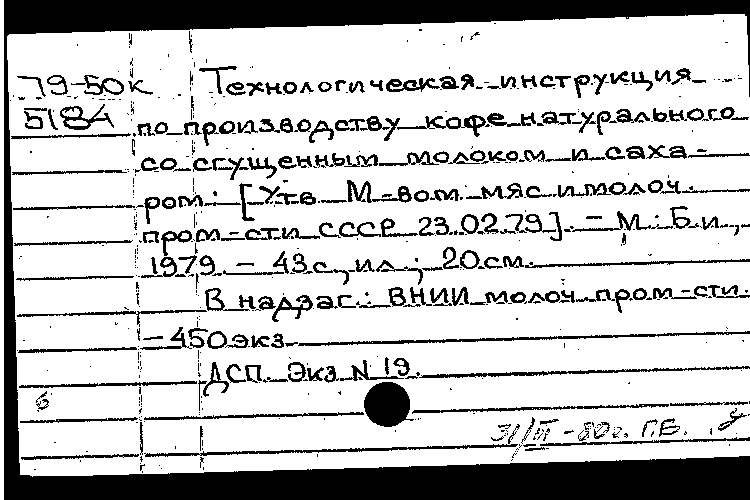 79-50к Технологическая инструкция
5184 по производству кофе натурального
со сгущенным молоком и саха-
ром: [Утв М-вом мяс и молоч.
пром-сти СССР 23.02.79]. – М: Б.и.,
1979. – 43с., ил.; 20см.
В надзаг.: ВНИИ молоч. пром-сти.
– 450экз
ДСП. Экз N 19.
б
31/III – 80г. Г.Б.